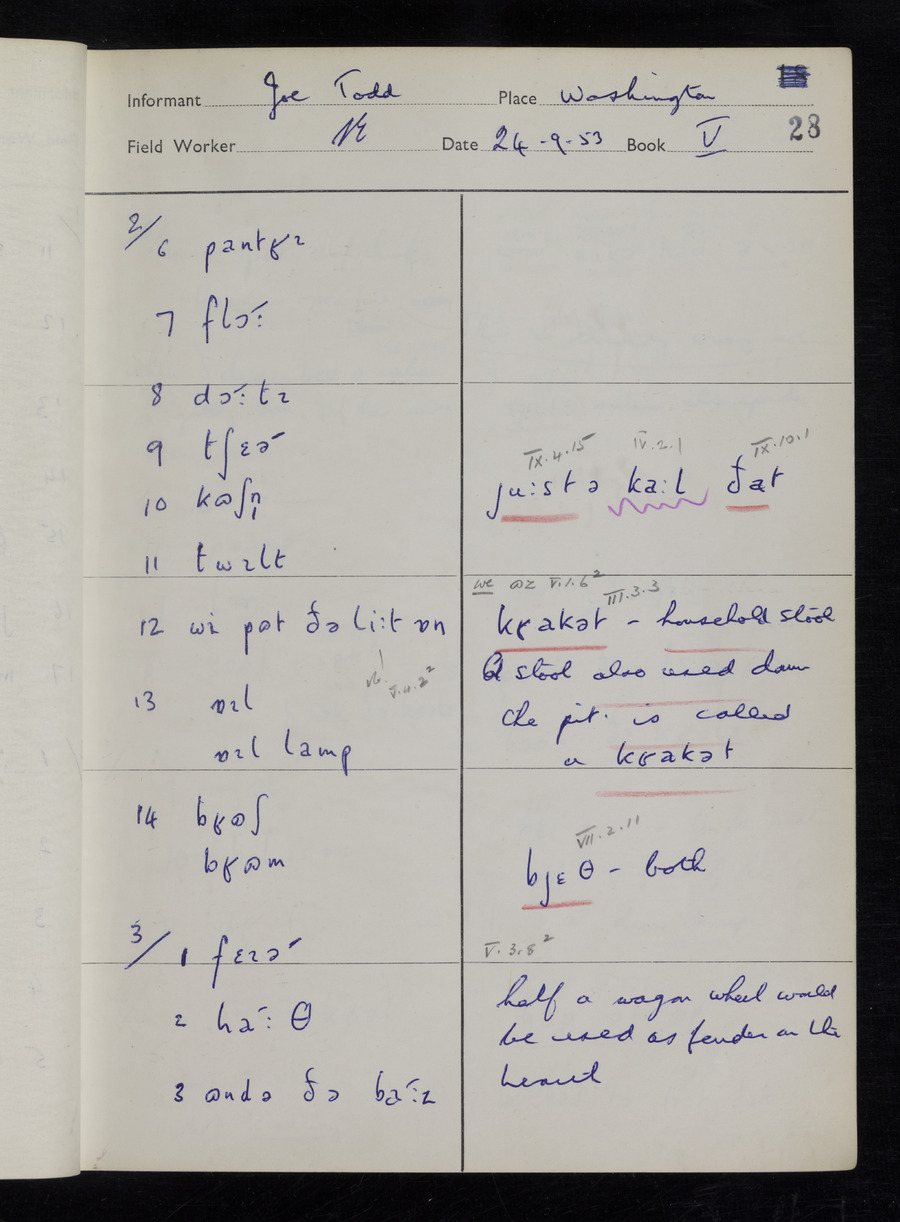 Informant Joe Todd Place Washington
Field Worker Date 24-9-53 Book V 28
2/ 6 pantʁɪ
7 flɔ˞ː
8 dɔ˞ːtɪ
9 tʃɛə˞
10 kɷʃn̩
11 twɪlt
12 wɪ pɷt ðə liːt ɒn
v. V.4.2²
13 ɒɪl
ɒɪl lamp
14 bʁɷʃ
bʁɷm
3/ 1 fɛɪə˞
2 ha˞ːθ
3 ɷndə ðə ba˞ːz
IX.4.15 IV.2.1 IX.10.1
juːstə kaːl ðat
we ɷz V.1.6² III.3.3
kʁakət - household stool
A stool also used down
the pit is called
a kʁakət
VII.2.11
bjɛθ - both
V.3.8²
half a wagon wheel would
be used as fender on the